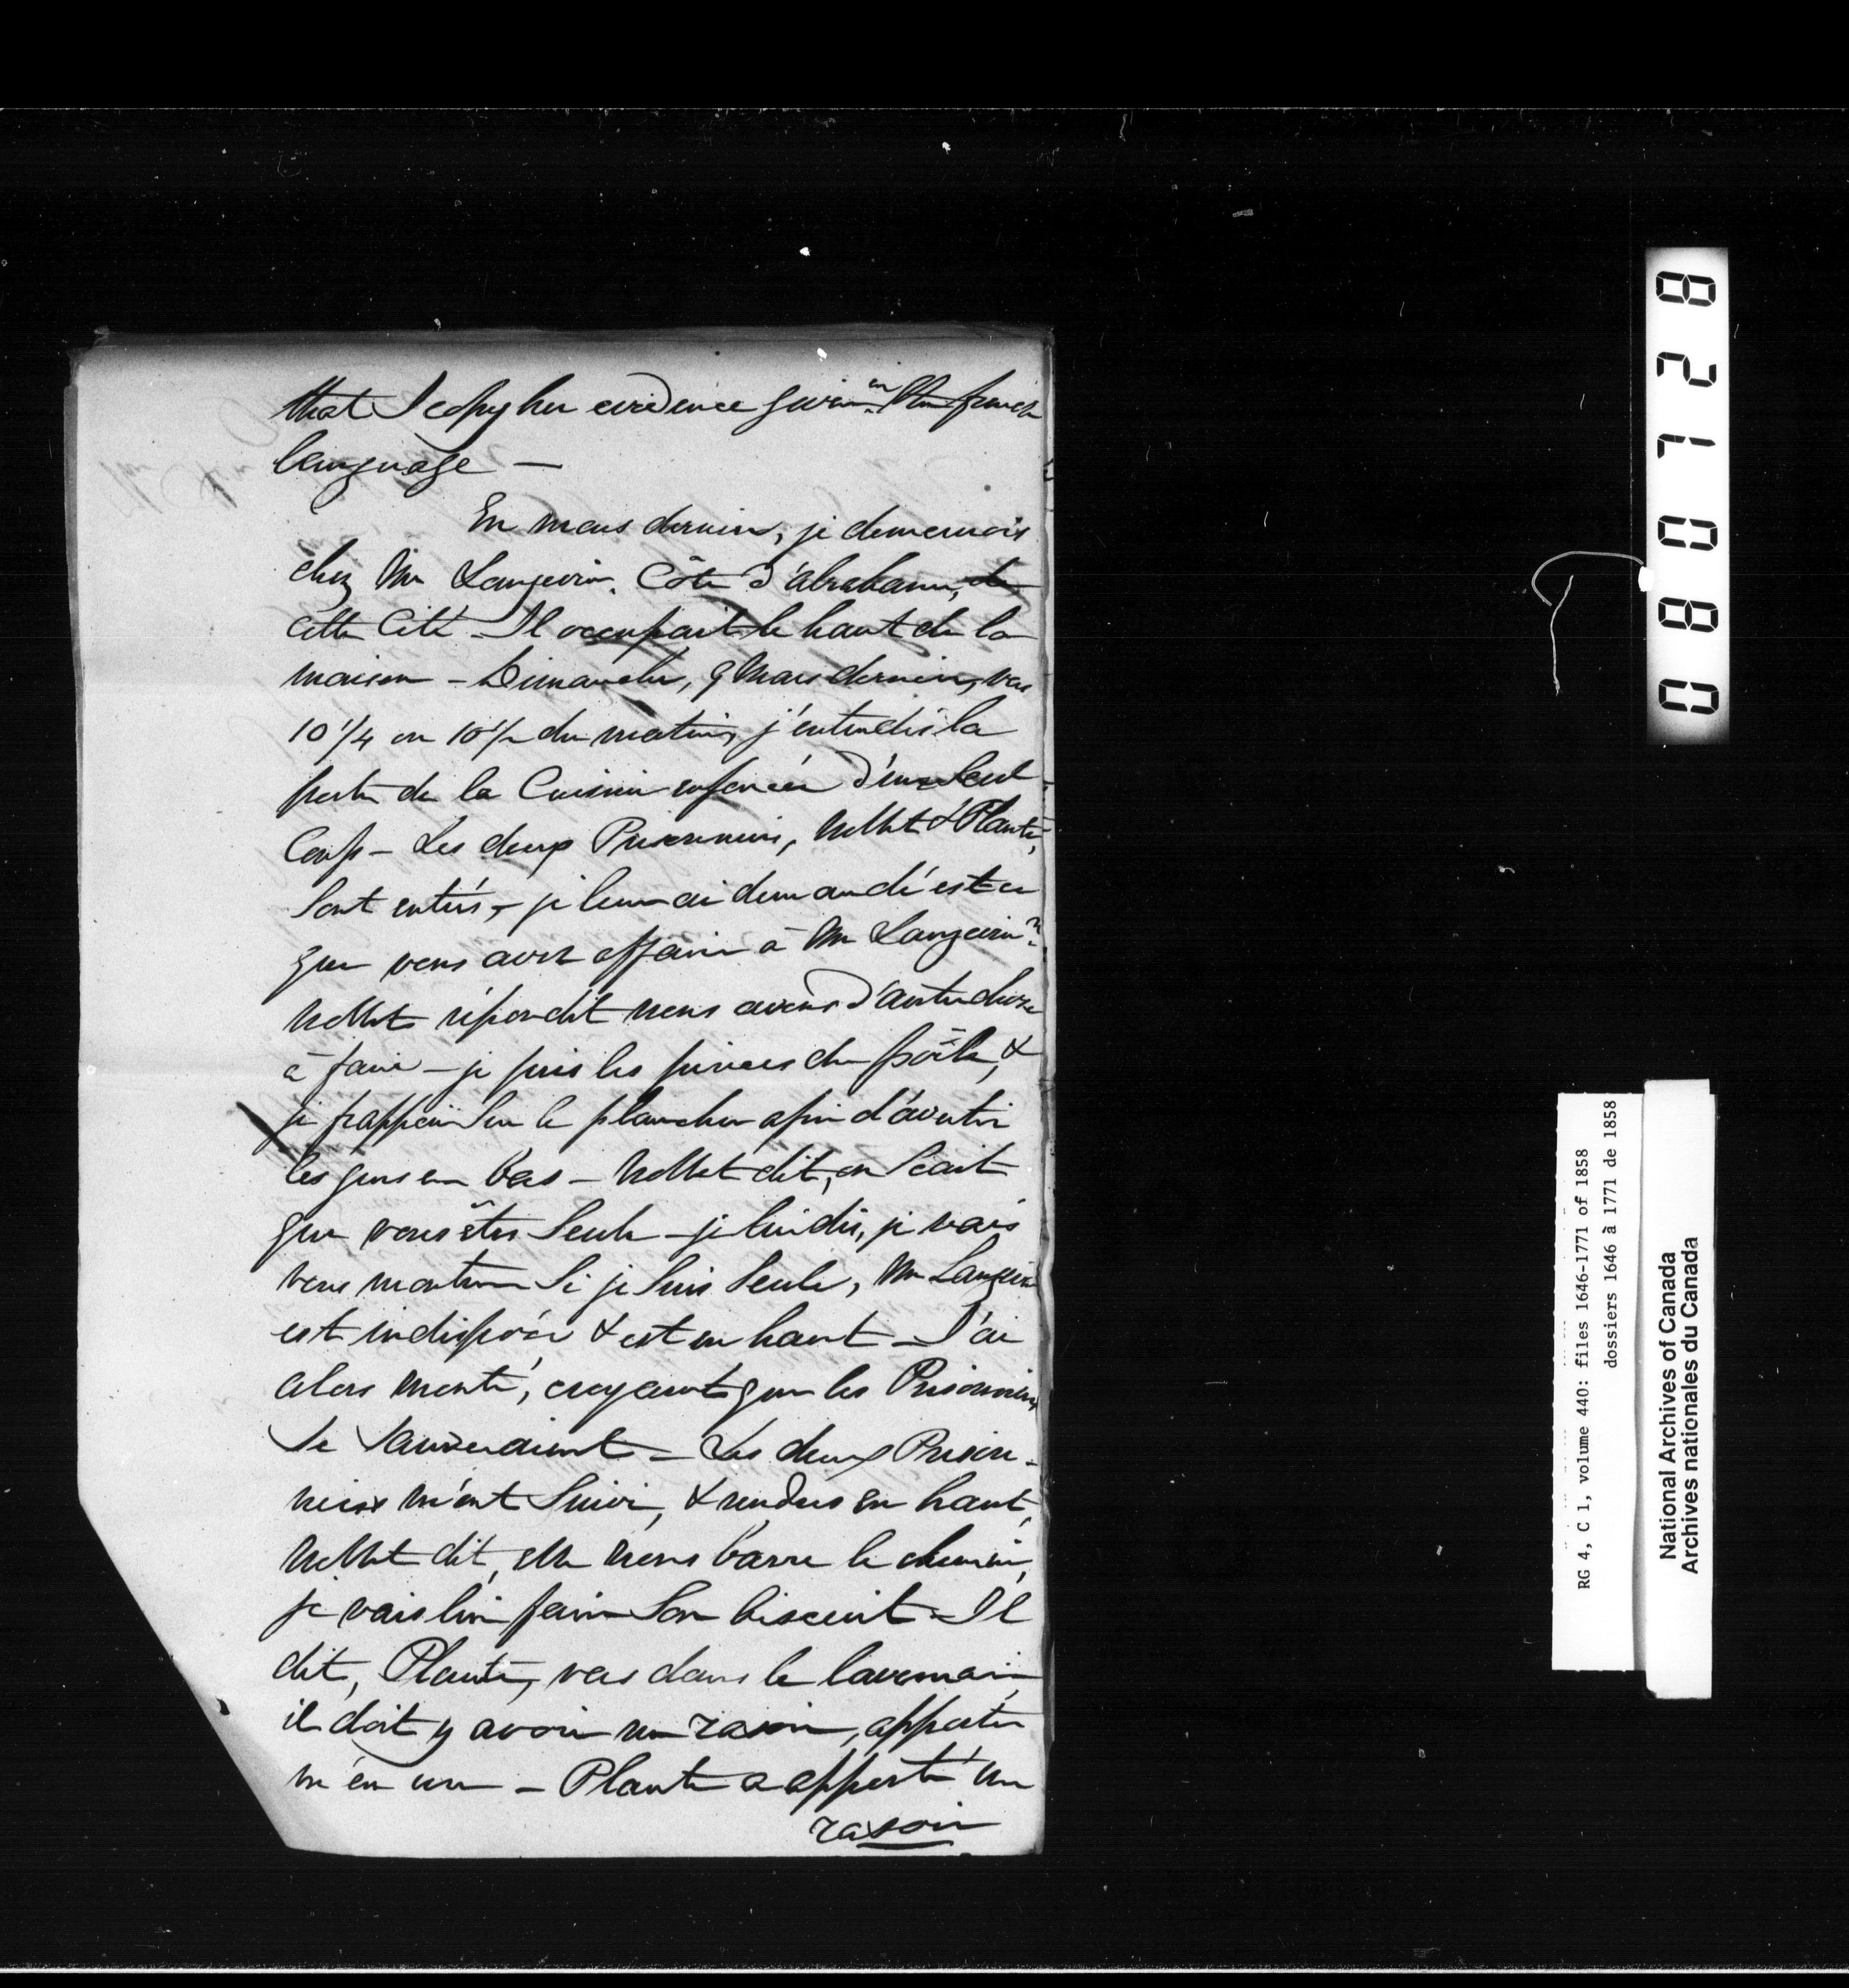 that I copy her evidence given in the french
language —
En mars dernier, je demeurais
chez Mr Langevin, Côte d'abraham, de
cette Cité — Il occupait le haut de la
maison — Dimanche, 9 Mars dernier, vers
10 1/4 ou 10 1/2 du matin, j'entendis la
porte de la Cuisine enfoncée d'un seul
Coup — Les deux Prisonniers, Nollet & Plante,
sont entrés, — je leur ai demandé est ce
que vous avez affaire à Mr Langevin?
Nollet répondit nous avons d'autre chose
à faire — je pris les pinces du poële, &
je frappai sur le plancher afin d'avertir
les gens en bas — Nollet dit, on scait
que vous êtes seule — je lui dis, je vais
vous montrer si je suis seule, Mr Langevin
est indisposé & est en haut — J'ai
alors monté, croyant que les Prisonniers
se sauveraient — Les deux Prison-
niers m'ont suivi, & rendus en haut,
Nollet dit, elle nous barre le chemin,
je vais lui faire son biscuit — Il
dit, Plante, vas dans le lavemain,
il doit y avoir un rasoir, apporte
m'en un — Plante a apporté un
rasoir
082078
RG 4, C 1, volume 440: files 1646-1771 of 1858
dossiers 1646 à 1771 de 1858
National Archives of Canada
Archives nationales du Canada